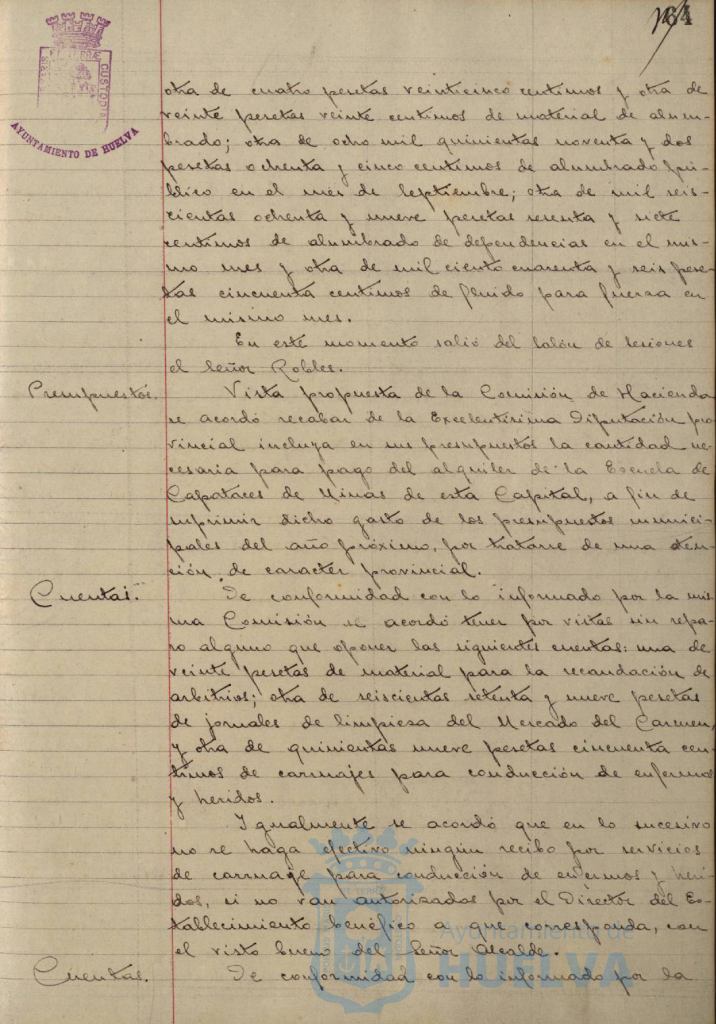 164
AYUNTAMIENTO DE HUELVA
otra de cuatro pesetas veinticinco centimos y otra de
veinte pesetas veinte centimos de material de alum-
brado; otra de ocho mil quinientas noventa y dos
pesetas ochenta y cinco centimos de alumbrado pú-
blico en el mes de Septiembre; otra de mil seis-
cientas ochenta y nueve pesetas sesenta y siete
centimos de alumbrado de dependencias en el mis-
mo mes y otra de mil ciento cuarenta y seis pese-
tas cincuenta centimos de fluido para fuerza en
el mismo mes.
En este momento salió del Salón de Sesiones
el Señor Robles.
Presupuestos.
Vista propuesta de la Comisión de Hacienda
se acordó recabar de la Excelentisima Diputación pro
vincial incluya en sus presupuestos la cantidad ne-
cesaria para pago del alquiler de la Escuela de
Capataces de Minas de esta Capital, a fin de
suprimir dicho gasto de los presupuestos munici-
pales del año próximo, por tratarse de una aten-
ción de caracter provincial.
Cuentas.
De conformidad con lo informado por la mis-
ma Comisión se acordó tener por vistas sin repa-
ro alguno que oponer las siguientes cuentas: una de
veinte pesetas de material para la recaudación de
arbitrios; otra de seiscientas setenta y nueve pesetas
de jornales de limpieza del Mercado del Carmen,
y otra de quinientas nueve pesetas cincuenta cen-
timos de carruajes para conducción de enfermos
y heridos.
Igualmente se acordó que en lo sucesivo
no se haga efectivo ningún recibo por servicios
de carruaje para conducción de enfermos y heri-
dos, si no van autorizados por el Director del Es-
tablecimiento benéfico a que corresponda, con
el visto bueno del Señor Alcalde.
Ayuntamiento de
HUELVA
Cuentas.
De conformidad con lo informado por la